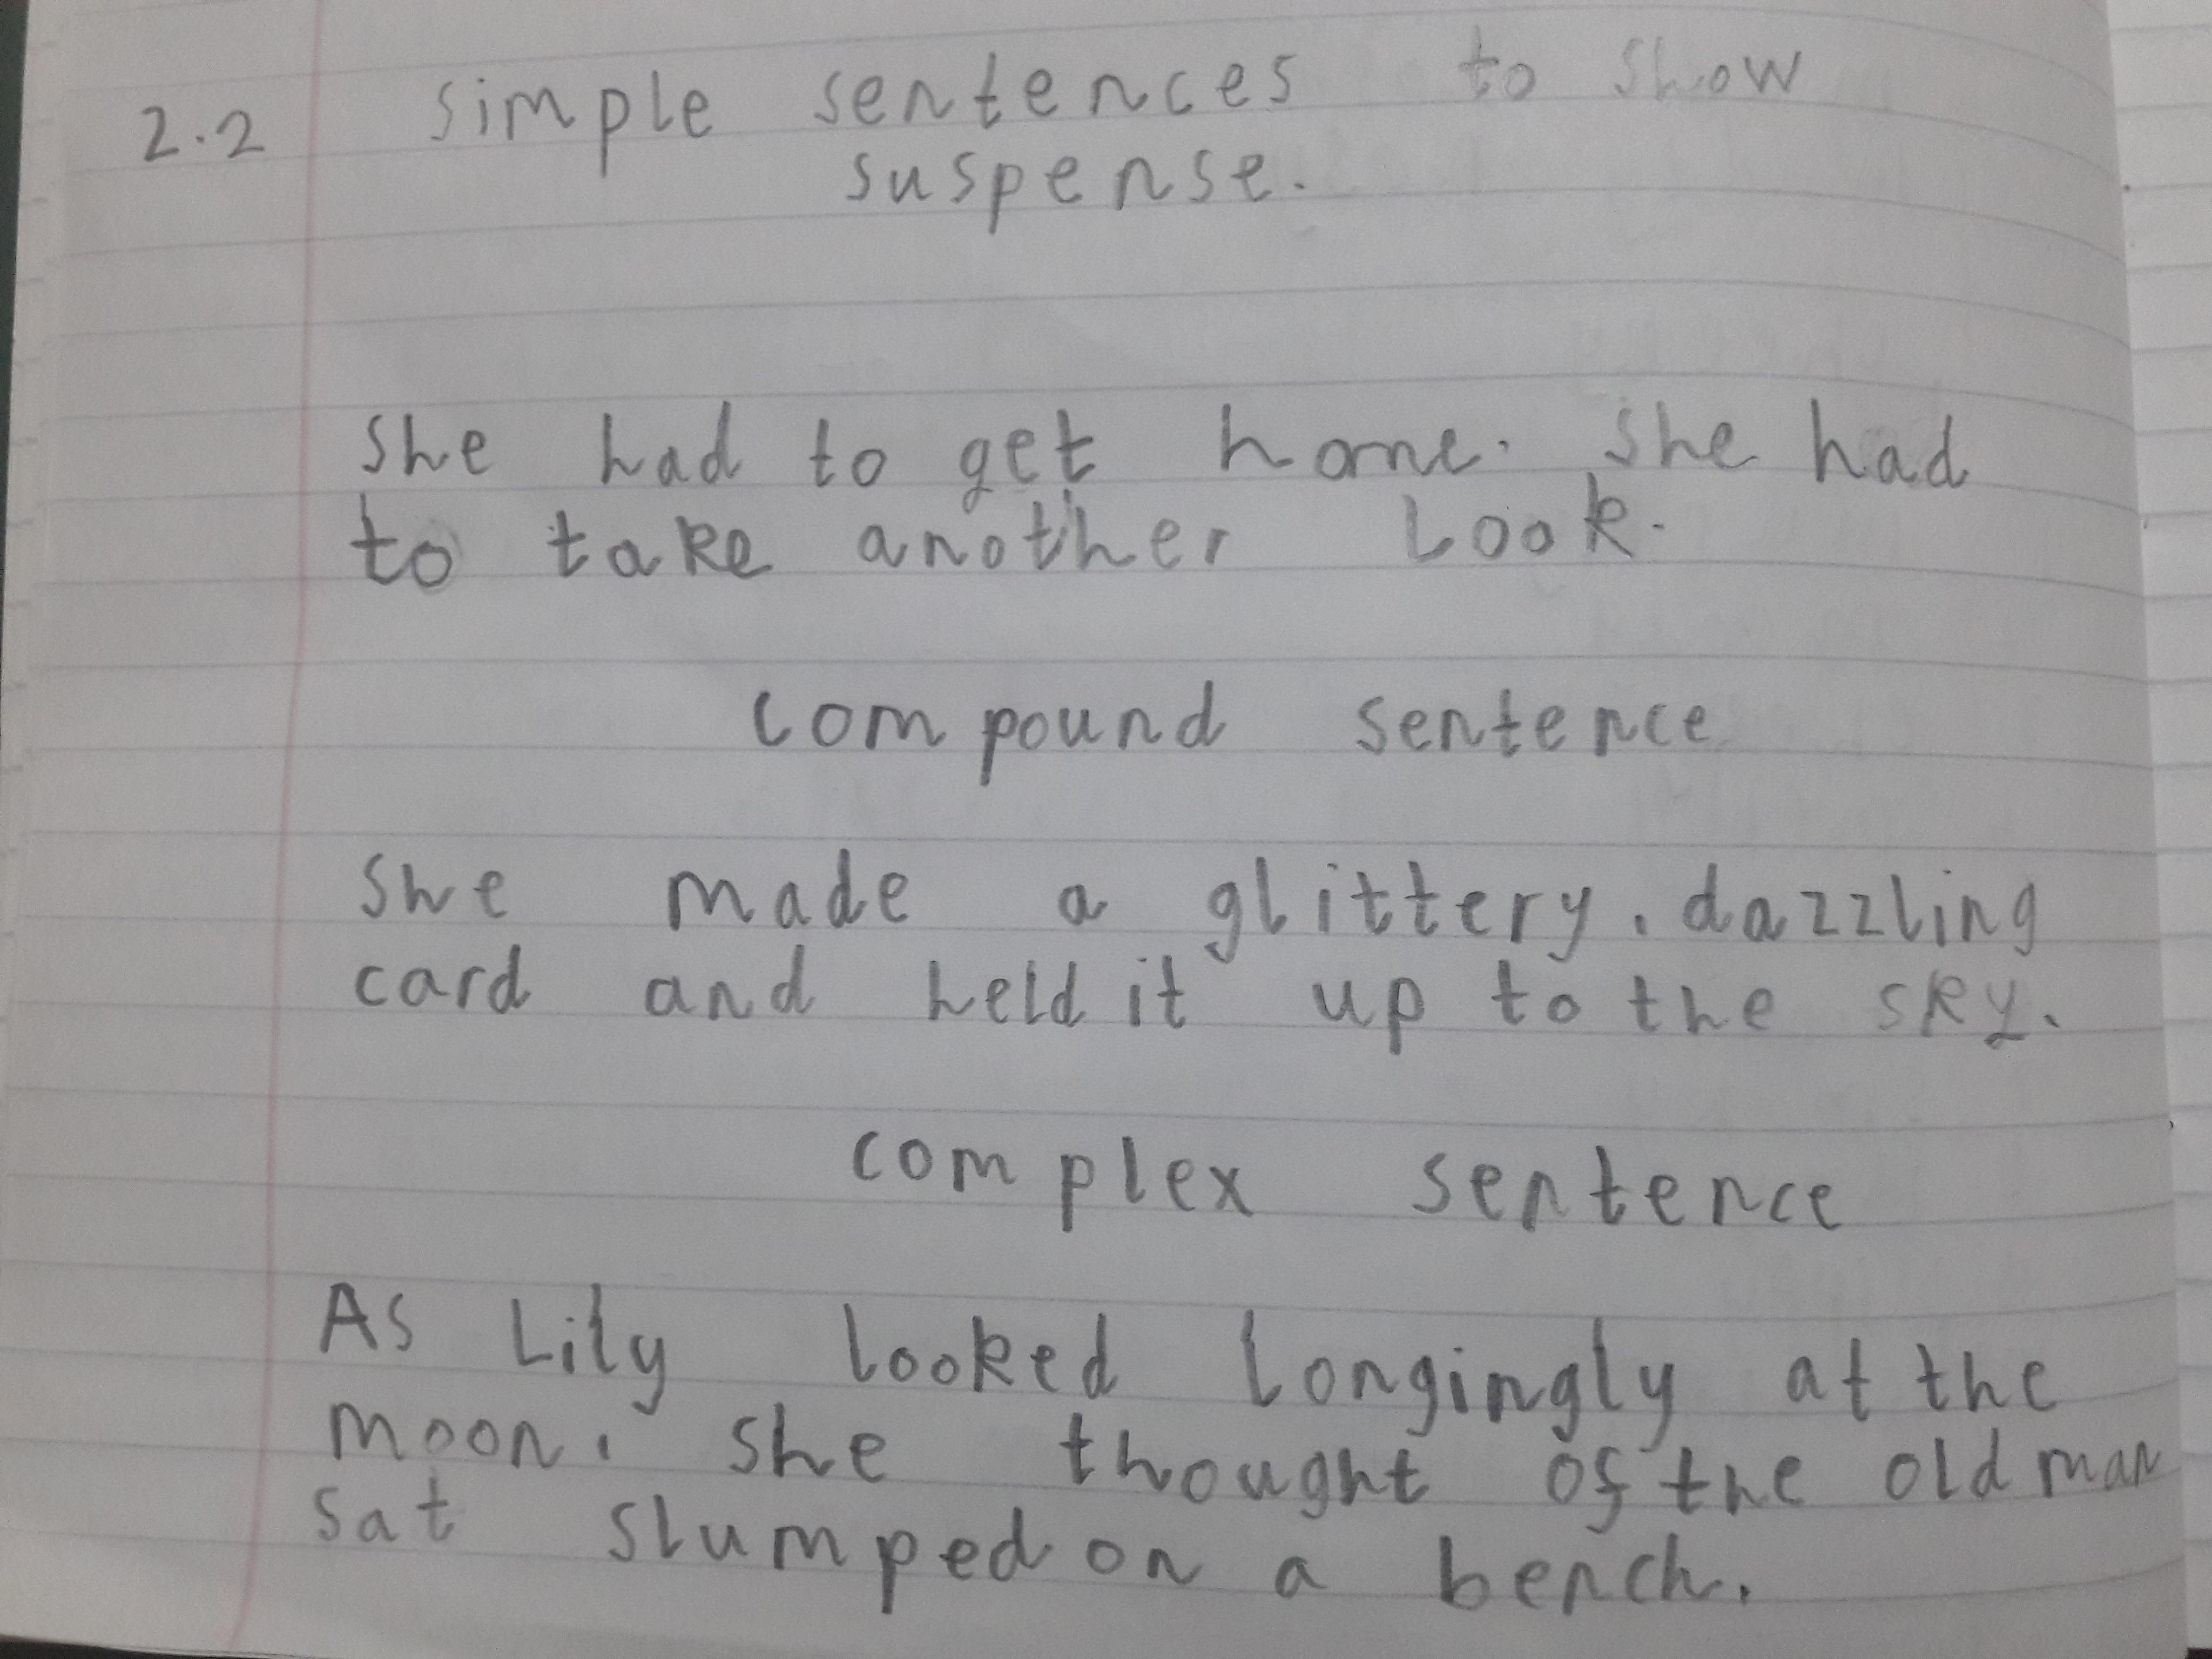 2.2 simple sentences to show
suspense.
She had to get home. She had
to take another look.
compound sentence
She made a glittery, dazzling
card and held it up to the sky.
complex sentence
As Lily looked longingly at the
moon, she thought of the old man
sat slumped on a bench.